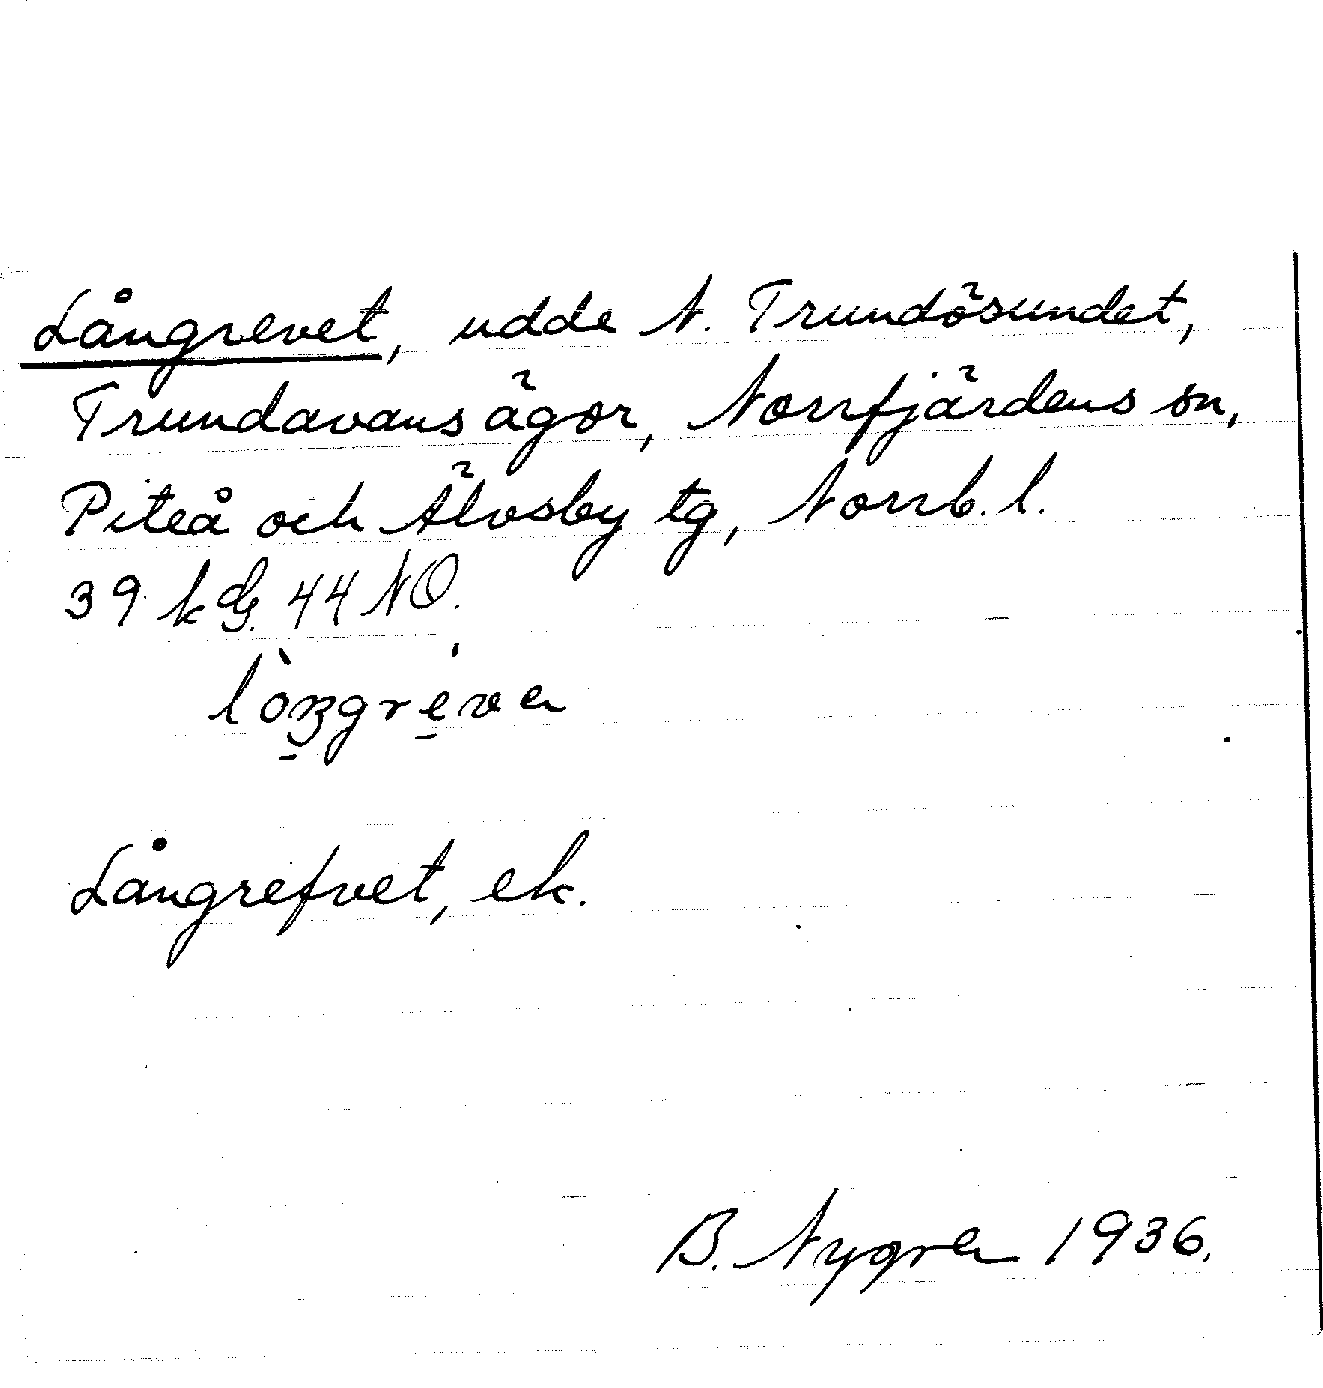 Långrevet, udde N. Trundösundet,
Trundavans ägor, Norrfjärdens sn,
Piteå och Älvsby tg, Norrb. l.
39 k G. 44 NO.
Långrefvet, ek.
B. Nygren 1936.